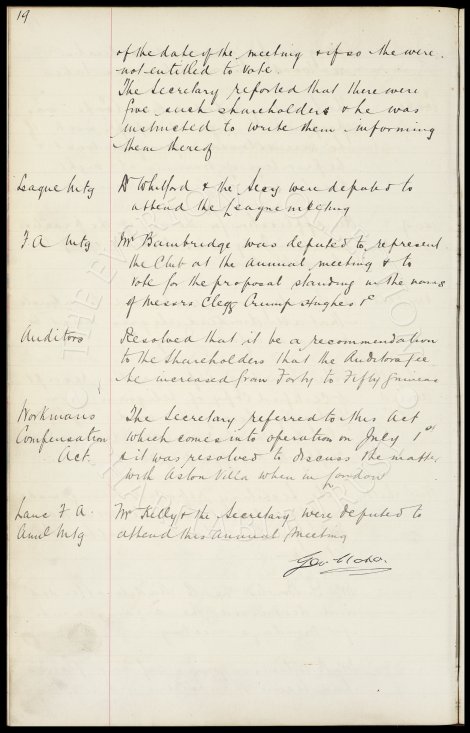 19
of the date of the meeting & if so they were
not entitled to vote.
The Secretary reported that there were
five such shareholders & he was
instructed to write them informing
them thereof
League Mtg Dr Whitford & the Secy were deputed to
attend the League meeting
F A Mtg Mr Bainbridge was deputed to represent
the Club at the annual meeting & to
vote for the proposal standing in the names
of Messrs Clegg Crump Hughes &c
Auditors Resolved that it be a recommendation
to the Shareholders that the Auditors fee
be increased from Forty to Fifty guineas
Workmans The Secretary referred to this Act
Compensation which comes into operation on July 1st
Act. & it was resolved to discuss the matter
with Aston Villa when in London
Lanc F A. Mr Kelly & the Secretary were deputed to
Anul Mtg attend this Annual Meeting
Geo. Mahon